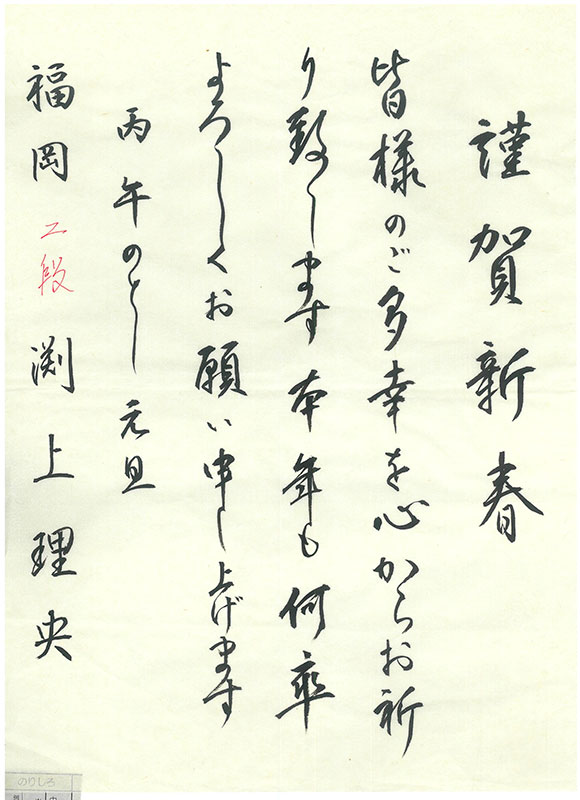 謹賀新春
皆様のご多幸を心からお祈
り致します本年も何卒
よろしくお願い申し上げます
丙午のとし元旦
福岡 二段 渕上理央
のりしろ